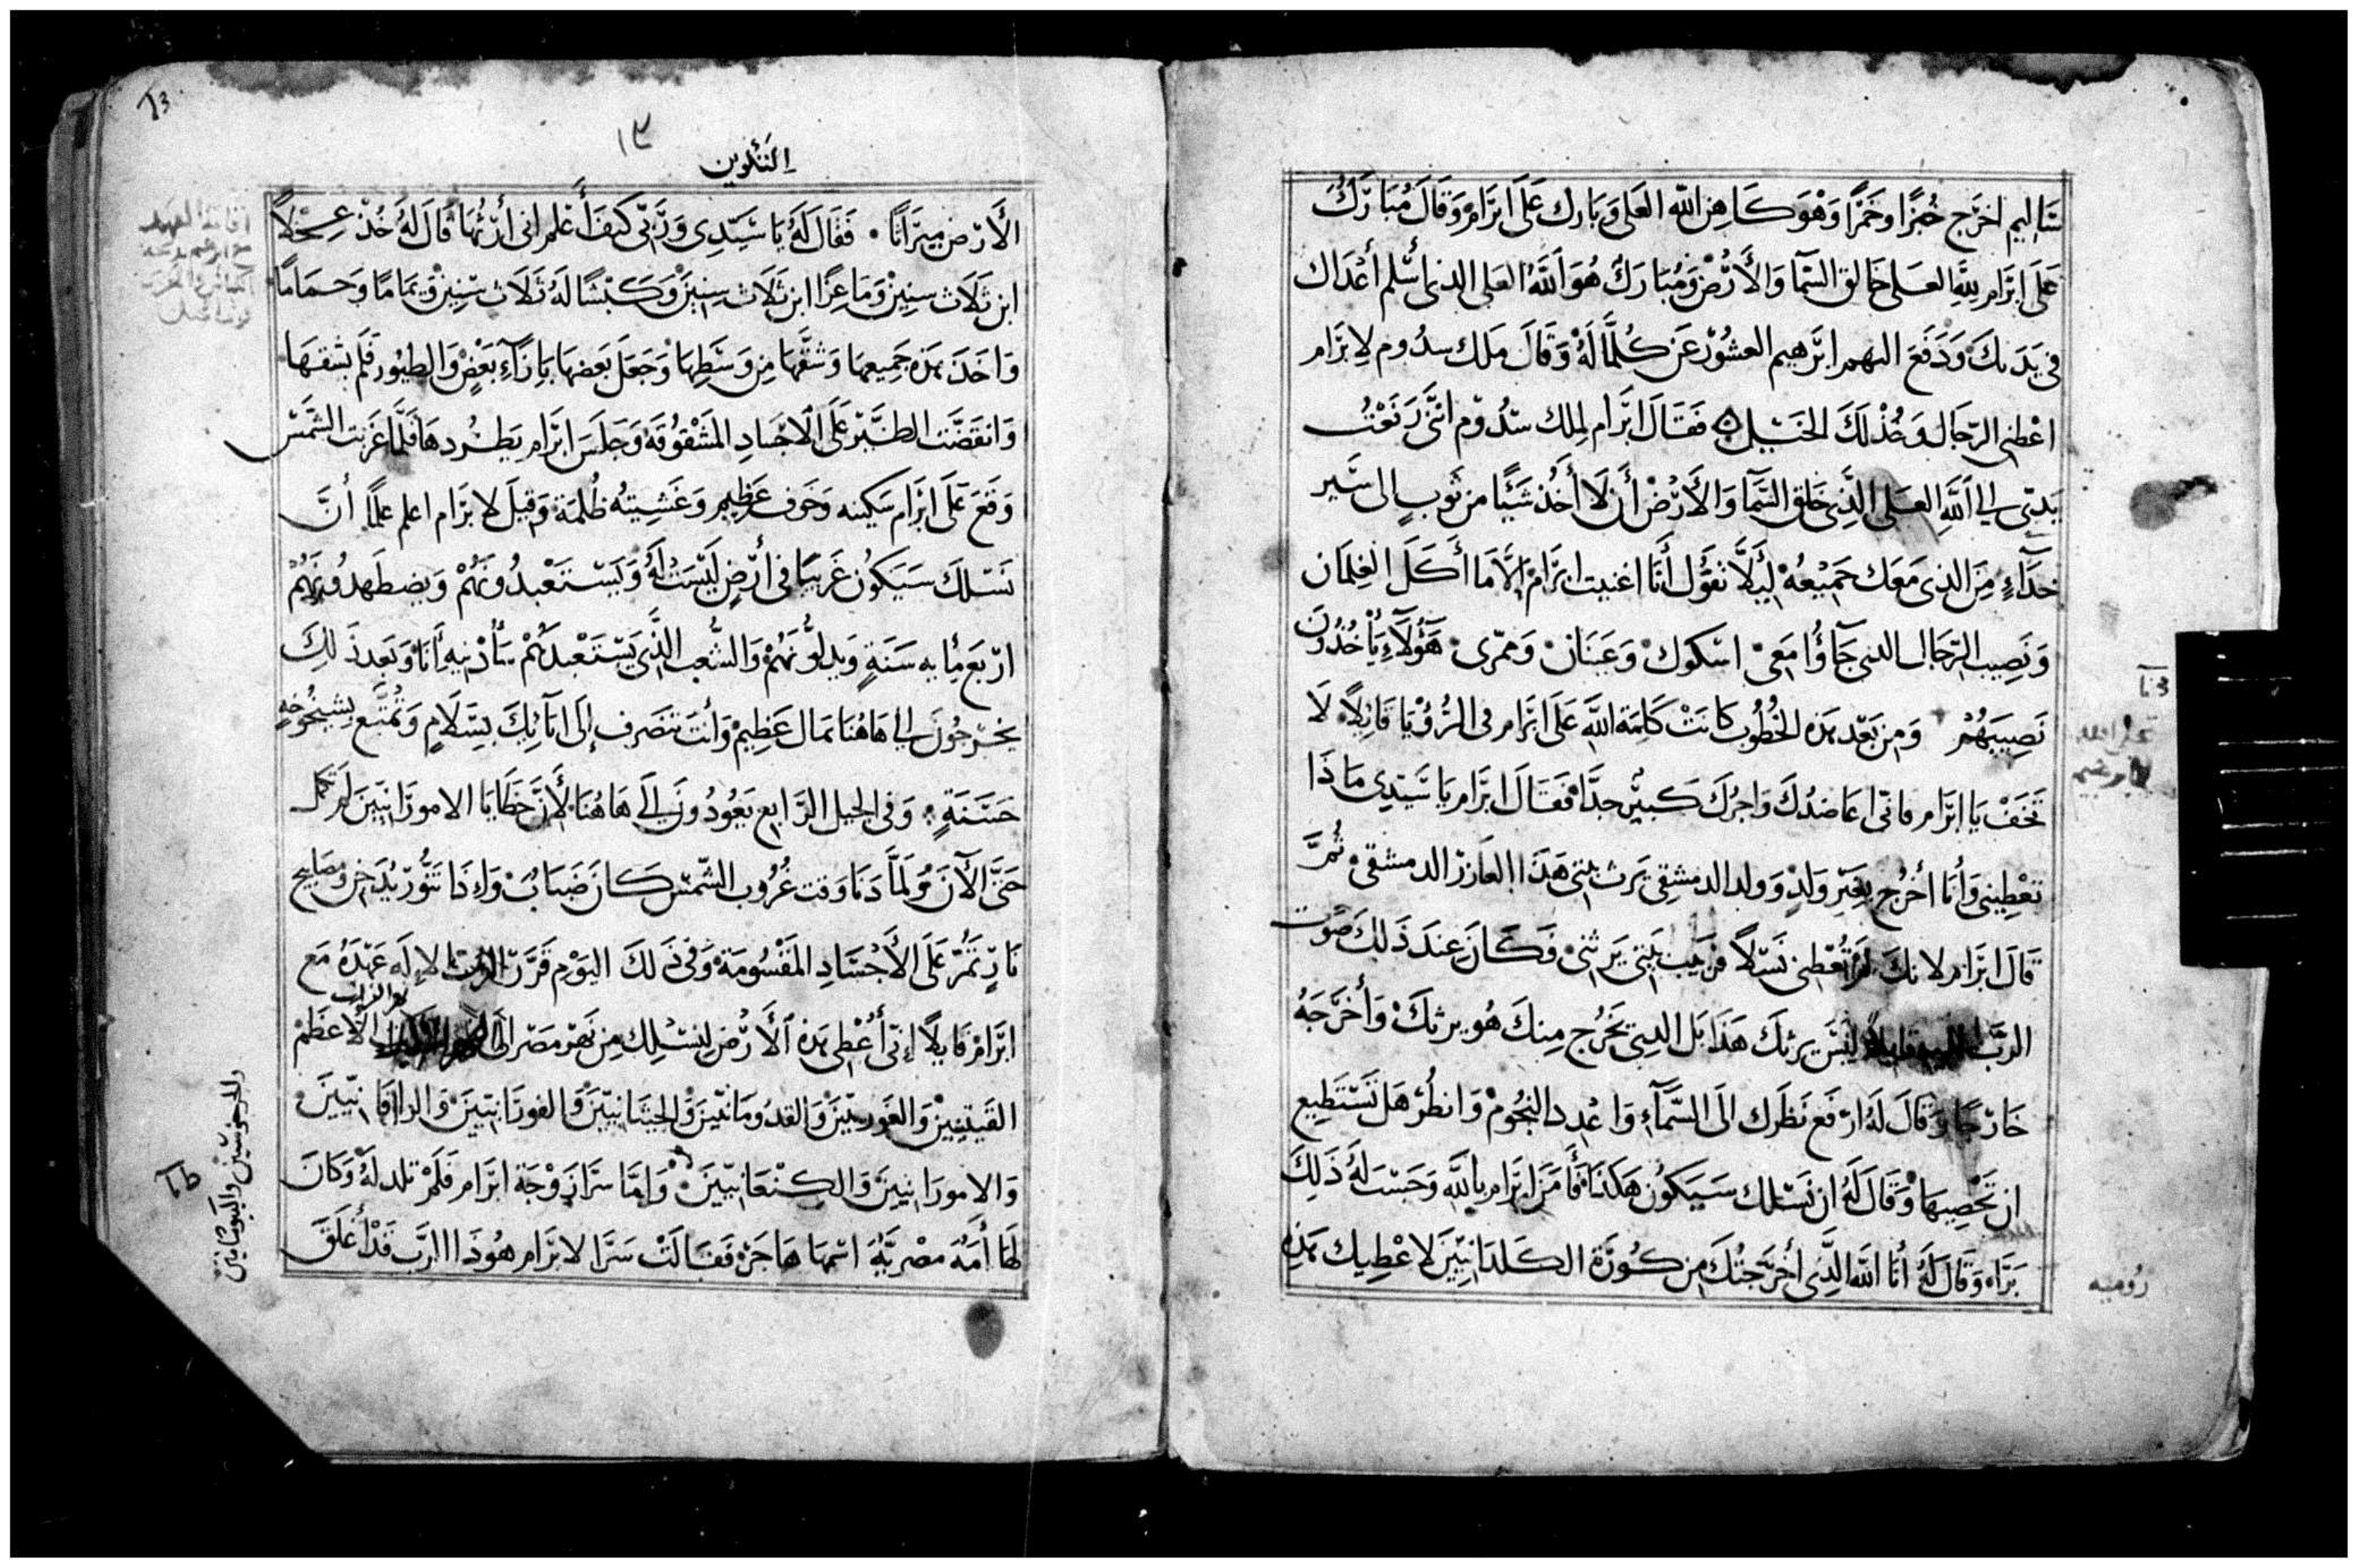 ساليم اخرج خُبزًا وخمرًا وَهْوَ كَاهِن الله العَلى وَبَارك عَلَى ابرَام وَقَالَ مُبَارَكُ
عَلَى ابرَام لِلهِ العَلى خَالق السَّمآ وَالأرض وَمُبَارَكٌ هُوَ اَللَّهُ العَلى الذى أسلم أعْدَاك
فى يَدَيكَ وَدَفَعَ اليهم ابرَهيم العشُور عَن كُلمَّا لَهُ وَقَالَ مَلك سدُوم لِابرَام
اعْطنى الرّجَال وَخُذ لَكَ الخَيْل فَقَالَ ابرَام لِملك سدُوم انَّى رَفَعْتُ
يَدىّ الى اَللَّهِ العَلى الَّذِى خَلق السَّمآ وَالأرض أن لَا أَخُذ شَيئًا من ثوبٍ الى سَير
حذآءٍ مِنَ الذى مَعَك جَميْعهُ لِيَلاَّ تَقوُل أنَا اغنيت ابرَام الاَّ مَا أكَلَ الغِلمَان
وَنَصِيب الرّجَال الذى جَآؤُا مَعى اسكوك وَعَينَان وَممرى هَؤُلَآءِ يَأْخُذُون
نَصِيبَهُمْ وَمِن بَعْد هَذه الخُطُوب كَانَتْ كَلمَة اللهِ عَلَى ابرَام فى الرُّؤيَا قَايلاً لَا
تخَفْ يَا ابرَام فانّى اعَاضدُكَ وَاجرُكَ كَبيرٌ جدًّا فَقَالَ ابرَام يَا سَيّدِى مَاذَا
تعْطِينى وَأنَا أخرُج بغَيرِ وَلدٍ وَولد الدمشقى يَرث بيتى هَذَا العَازر الدمشقى ثُمَّ
قَالَ ابرَام لانكَ لم تُعْطِنى نَسْلاً فربيب بَيتى يَرثنى فَكَانَ عندَ ذَلكَ صَوْت
الرَّبّ اليه قايلاً لَيْسَ يرثكَ هَذَا بَل الذِى يَخرُج مِنكَ هُو يرثكَ وَأخرَجَهُ
خَارجًا وَقَالَ لَهُ ارفَع نَظَرك الَى السَّمَآءِ وَاعْدِد النجُوم وَانظُر هَل تَسْتَطِيع
ان تُحْصِيهَا وَقَالَ لَهُ ان نَسْلك سَيَكُونُ هَكَذَا فَأَمَن ابرَام بالله وَحَسَب لَهُ ذَلِكَ
بَرَّاً وَقَالَ لَهُ أنَا اللَّه الَّذِى أخرَجتُكَ مِن كُورَة الكَلدَانيّينَ لاعْطِيك هَذِهِ
رُوميه
١٣
التكوين
13
الأرض ميرَاثًا فَقَالَ لَهُ يَا سَيّدِى وَرَبّى كيَف أعْلم انى أرثُهَا قَالَ لَهُ خُذ عِجْلاً
ابن ثَلَاث سنِين وَمَاعِزًا ابن ثَلَاث سِنِين وَكَبْشًا لَهُ ثَلَاث سنِين وَيَمَامًا وَحَمَامًا
وَاخَذ هَذه جَميعهَا وَشَقَّهَا مِن وَسَطِهَا وَجَعَلَ بَعضهَا بَازآءِ بَعْضٍ وَالطيُور فَلَم يشقهَا
وَانقضَّت الطَّيْر عَلَى الاجْسَادِ المَشْقُوقَة وَجَلَسَ ابرَام يَطرُدهَا فلَمَّا غَربَت الشَّمسْ
وَقَعَ عَلَى ابرَام سَكينه وَخَوف عَظِيم وَغَشِيتهُ ظُلمَة وَقيلَ لابرَام اعلم علمًا أنَّ
نَسْلَكَ سَيَكُون غَريبًا فى أرْضٍ لَيْسَتْ لَهُ وَيَسْتَعْبدُونَهُمْ وَيضطَهدُونَهُمْ
اربَع مأيه سَنَةٍ وَيذلوُّنَهُمْ وَالشَّعب الَّذى يَسْتَعْبدهُمْ سَأُدِينه أنَا وَبَعد ذَلِكَ
يخرُجُون الى هَاهُنَا بمَال عَظِيم وَأنتَ تنصَرف إلَى ابَآئِكَ بسَلَامٍ وَتُمتَّع بشيخُوخةٍ
حَسَنَةٍ وَفى الجيل الرَّابع يَعُودُونَ الى هَاهُنَا لأنَّ خَطَايَا الامورَانيينَ لم تكمل
حَتَّى الآنَ وَلَمَّا دَنَا وَقت غُرُوب الشَّمسْ كَانَ ضَبَابٌ وَإذَا تَنُّور يُدَخن وَمصَابيح
نَارٍ تَمُرّ عَلَى الأجْسَادِ المَقسُومَة وَفى ذَلكَ اليَوْم قَرَّرَ الربّ الإلَه عَهْدَهُ مَع
ابرَام قَايلاً إنّى أُعْطِى هَذه الأرض لِنسْلِك مِن نَهَر مصْر الَى الاعظَم
نهر الفرات
القَينيّينَ وَالقدُومَانيّينَ وَالحِيثَانيينَ وَالفورَانيينَ وَالرافَانيّينَ
وَالامورَانيينَ وَالكنعَانيّينَ وَامَّا سَرَا زَوْجَة ابرَام فَلَمْ تلد لَهُ وَكَانَ
لهَا أمَهٌ مصْريَّهُ اسْمهَا هَاجَرْ فَقَالَتْ سَرَا لابرَام هُوذَا الرَّبّ قَدْ أغلَقَ
والجرجوسيين واليبوسانيين